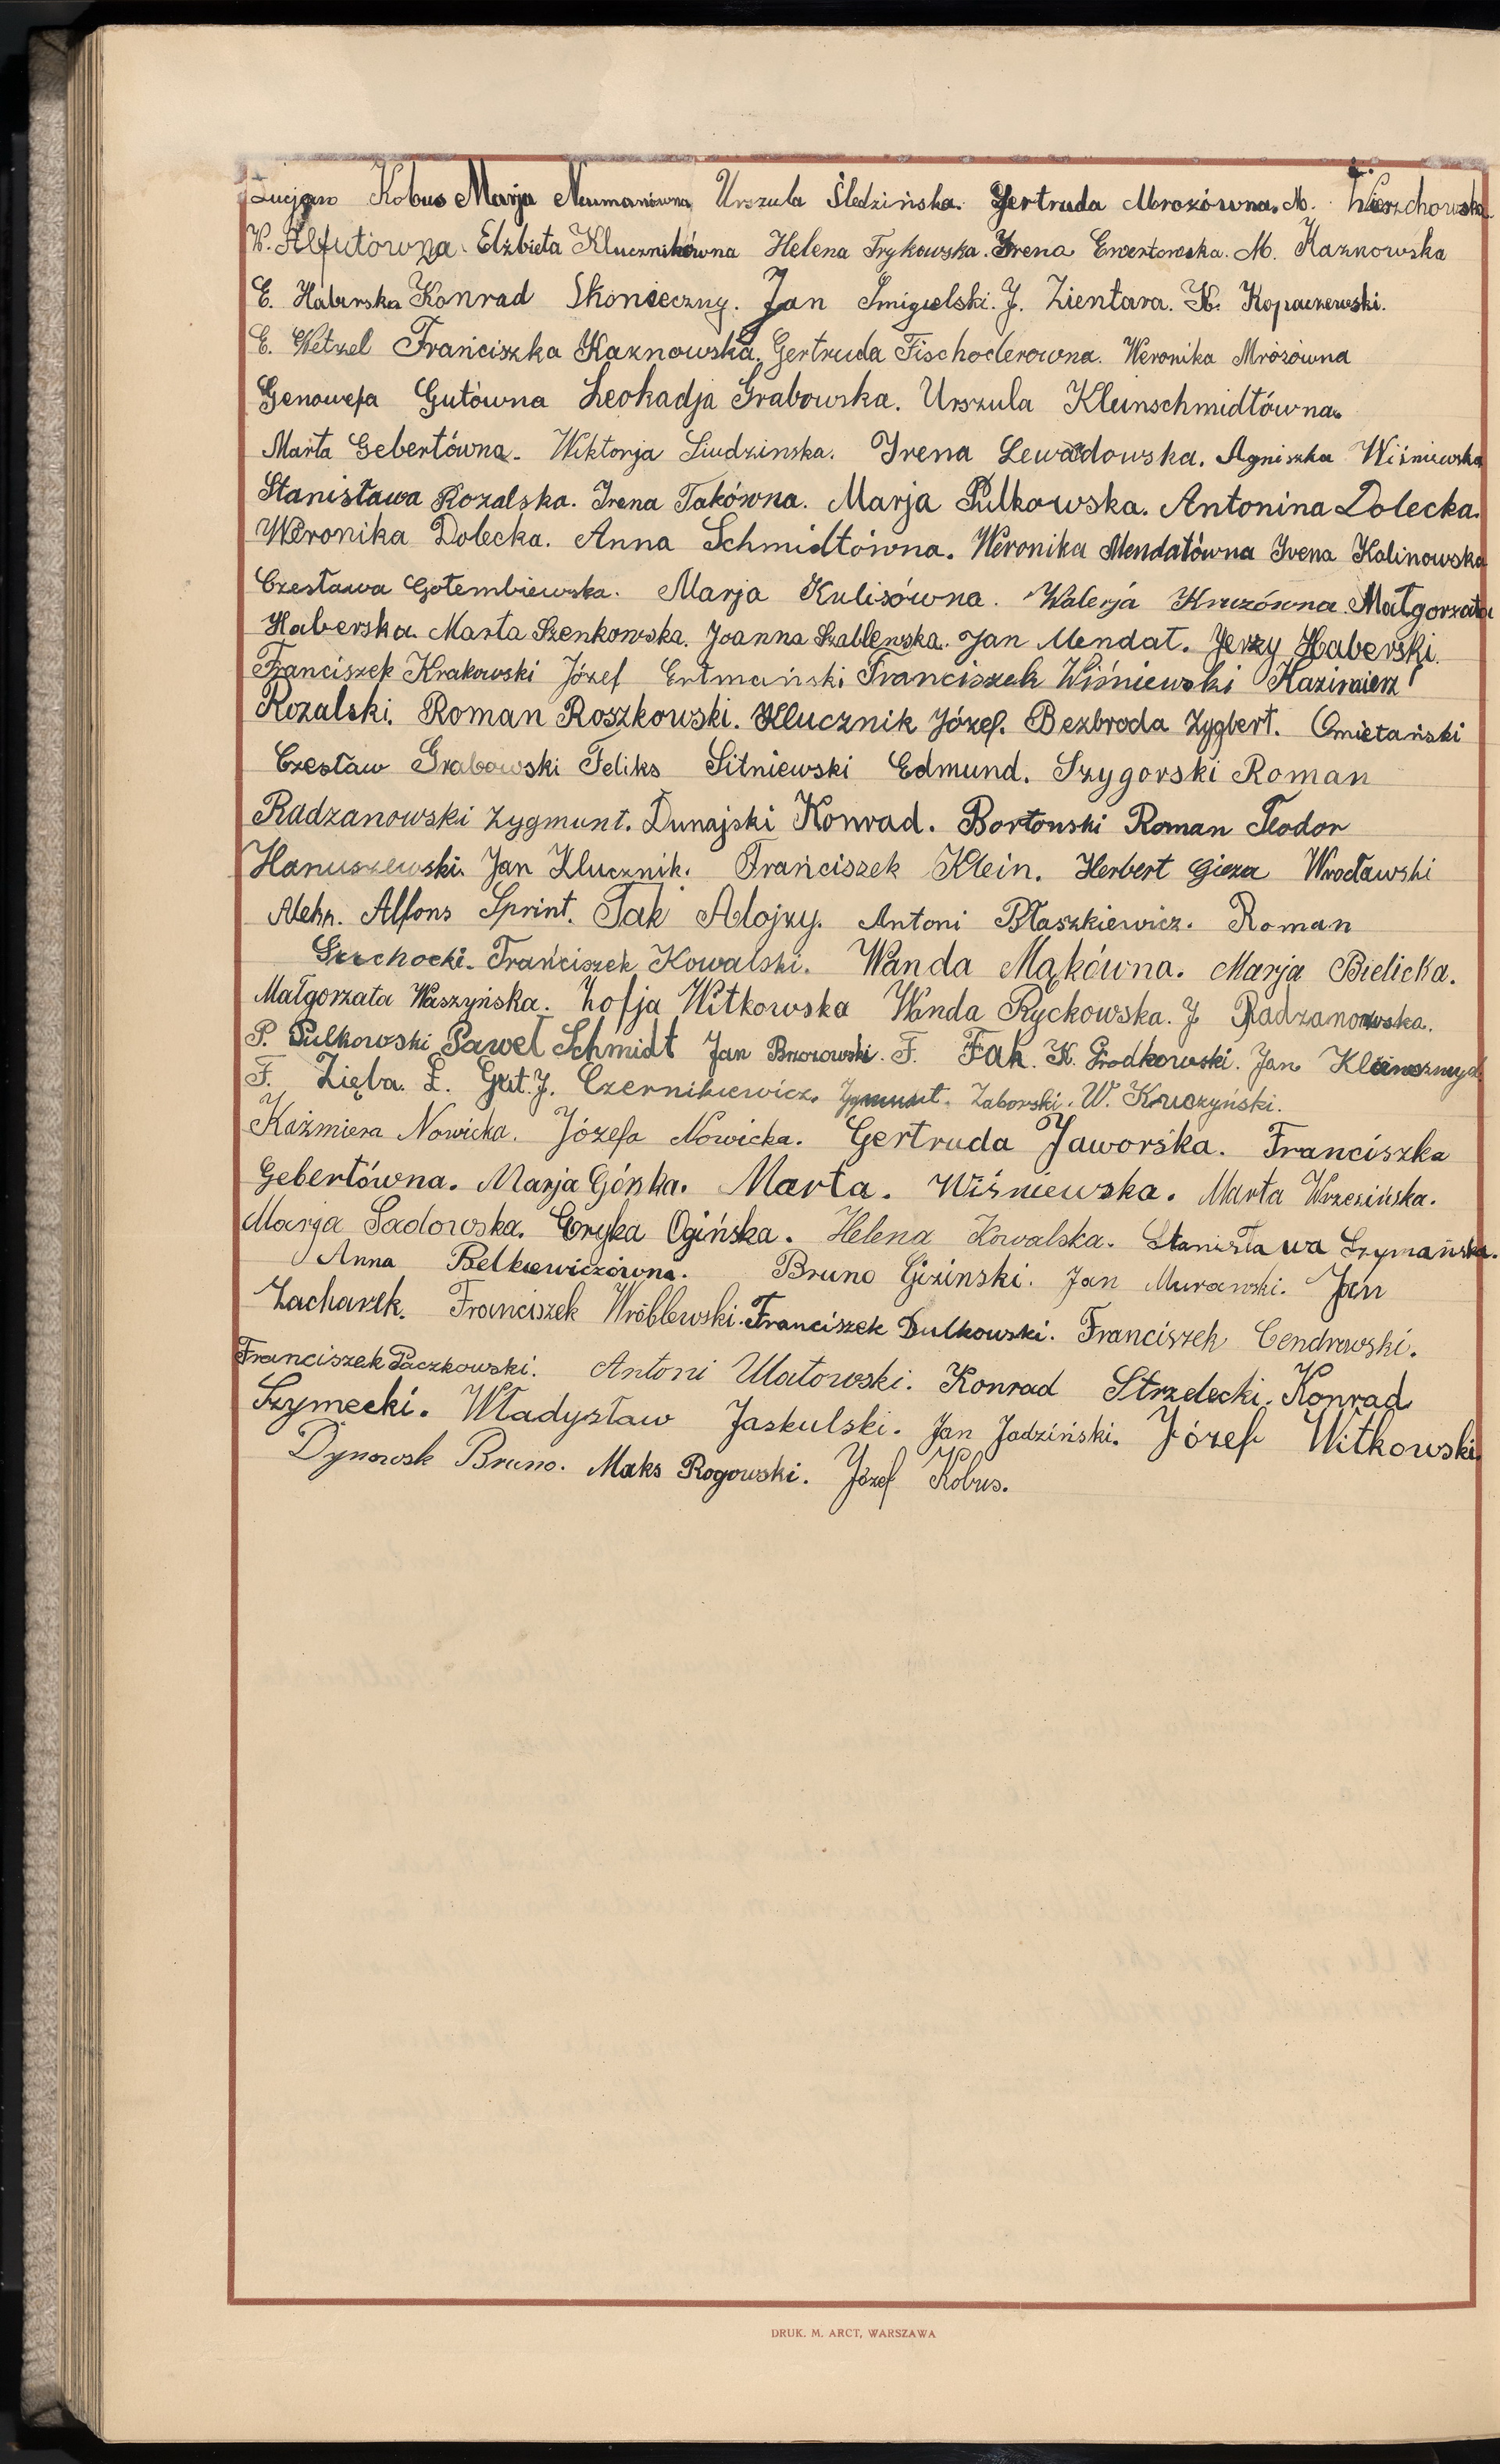 Lucjan Kobus Marja Neumanówna Urszula Śledzińska. Gertruda Mrozówna. M. Wierzchowska
W. Alfutówna. Elżbieta Klucznikówna Helena Trykowska. Irena Ewertowska. M. Kaznowska
E. Haberska Konrad Skonieczny. Jan Śmigielski. J. Zientara. K. Kopaczewski.
E. Wetzel Franciszka Kaznowska. Gertruda Fischoderowna. Weronika Mrózówna
Genowefa Gutówna Leokadja Grabowska. Urszula Kleinschmidtówna.
Marta Gebertówna. Wiktorja Siudzinska. Irena Lewadowska. Agniszka Wiśniewska
Stanisława Rozalska. Irena Takówna. Marja Pulkowska. Antonina Dolecka.
Weronika Dolecka. Anna Schmidtówna. Weronika Mendatówna Irena Kalinowska
Czesława Gołembiewska. Marja Kulisówna. Walerja Małgorzata
Haberska. Marta Szenkowska. Joanna Szablewska. Jan Mendat. Jerzy Haberski.
Franciszek Krakowski Józef Ertmański Franciszek Wiśniewski Kazimierz
Rozalski. Roman Roszkowski. Klucznik Józef. Bezbroda Zygbert. Omietański
Czesław Grabowski Feliks Sitniewski Edmund. Szygorski Roman
Radzanowski Zygmunt. Dunajski Konrad. Bortouski Roman Teodor
Hanuszewski. Jan Klucznik. Franciszek Klein. Herbert Gieza Wrocławski
Aleks. Alfons Sprint. Tak Alojzy. Antoni Błaszkiewicz. Roman
Franciszek Kowalski. Wanda Mąkówna. Marja Bielicka.
Małgorzata Waszyńska. Zofja Witkowska Wanda Ryckowska. J. Radzanowska.
P. Pulkowski Paweł Schmidt Jan Brzozowski. F. Fak. K. Grodkowski. Jan
F. Zięba. L. Gut. J. Czernikiewicz. Zygmunt. Zaborski. W. Kruczyński.
Kaźmiera Nowicka. Józefa Nowicka. Gertruda Jaworska. Franciszka
Gebertówna. Marja Górska. Marta. Wiśniewska. Marta Wrzesińska.
Marja Sadowska. Eryka Ogińska. Helena Kowalska. Stanisława Szymańska.
Anna Belkiewiczówna. Bruno Gizinski. Jan Murawski. Jan
Zacharek. Franciszek Wróblewski. Franciszek Dulkowski. Franciszek Cendrowski.
Franciszek Paczkowski. Antoni Ulatowski. Konrad Strzelecki. Konrad
Szymecki. Władysław Jaskulski. Jan Jadziński. Józef Witkowski.
Dynowsk Bruno. Maks Rogowski. Józef Kobus.
DRUK. M. ARCT, WARSZAWA